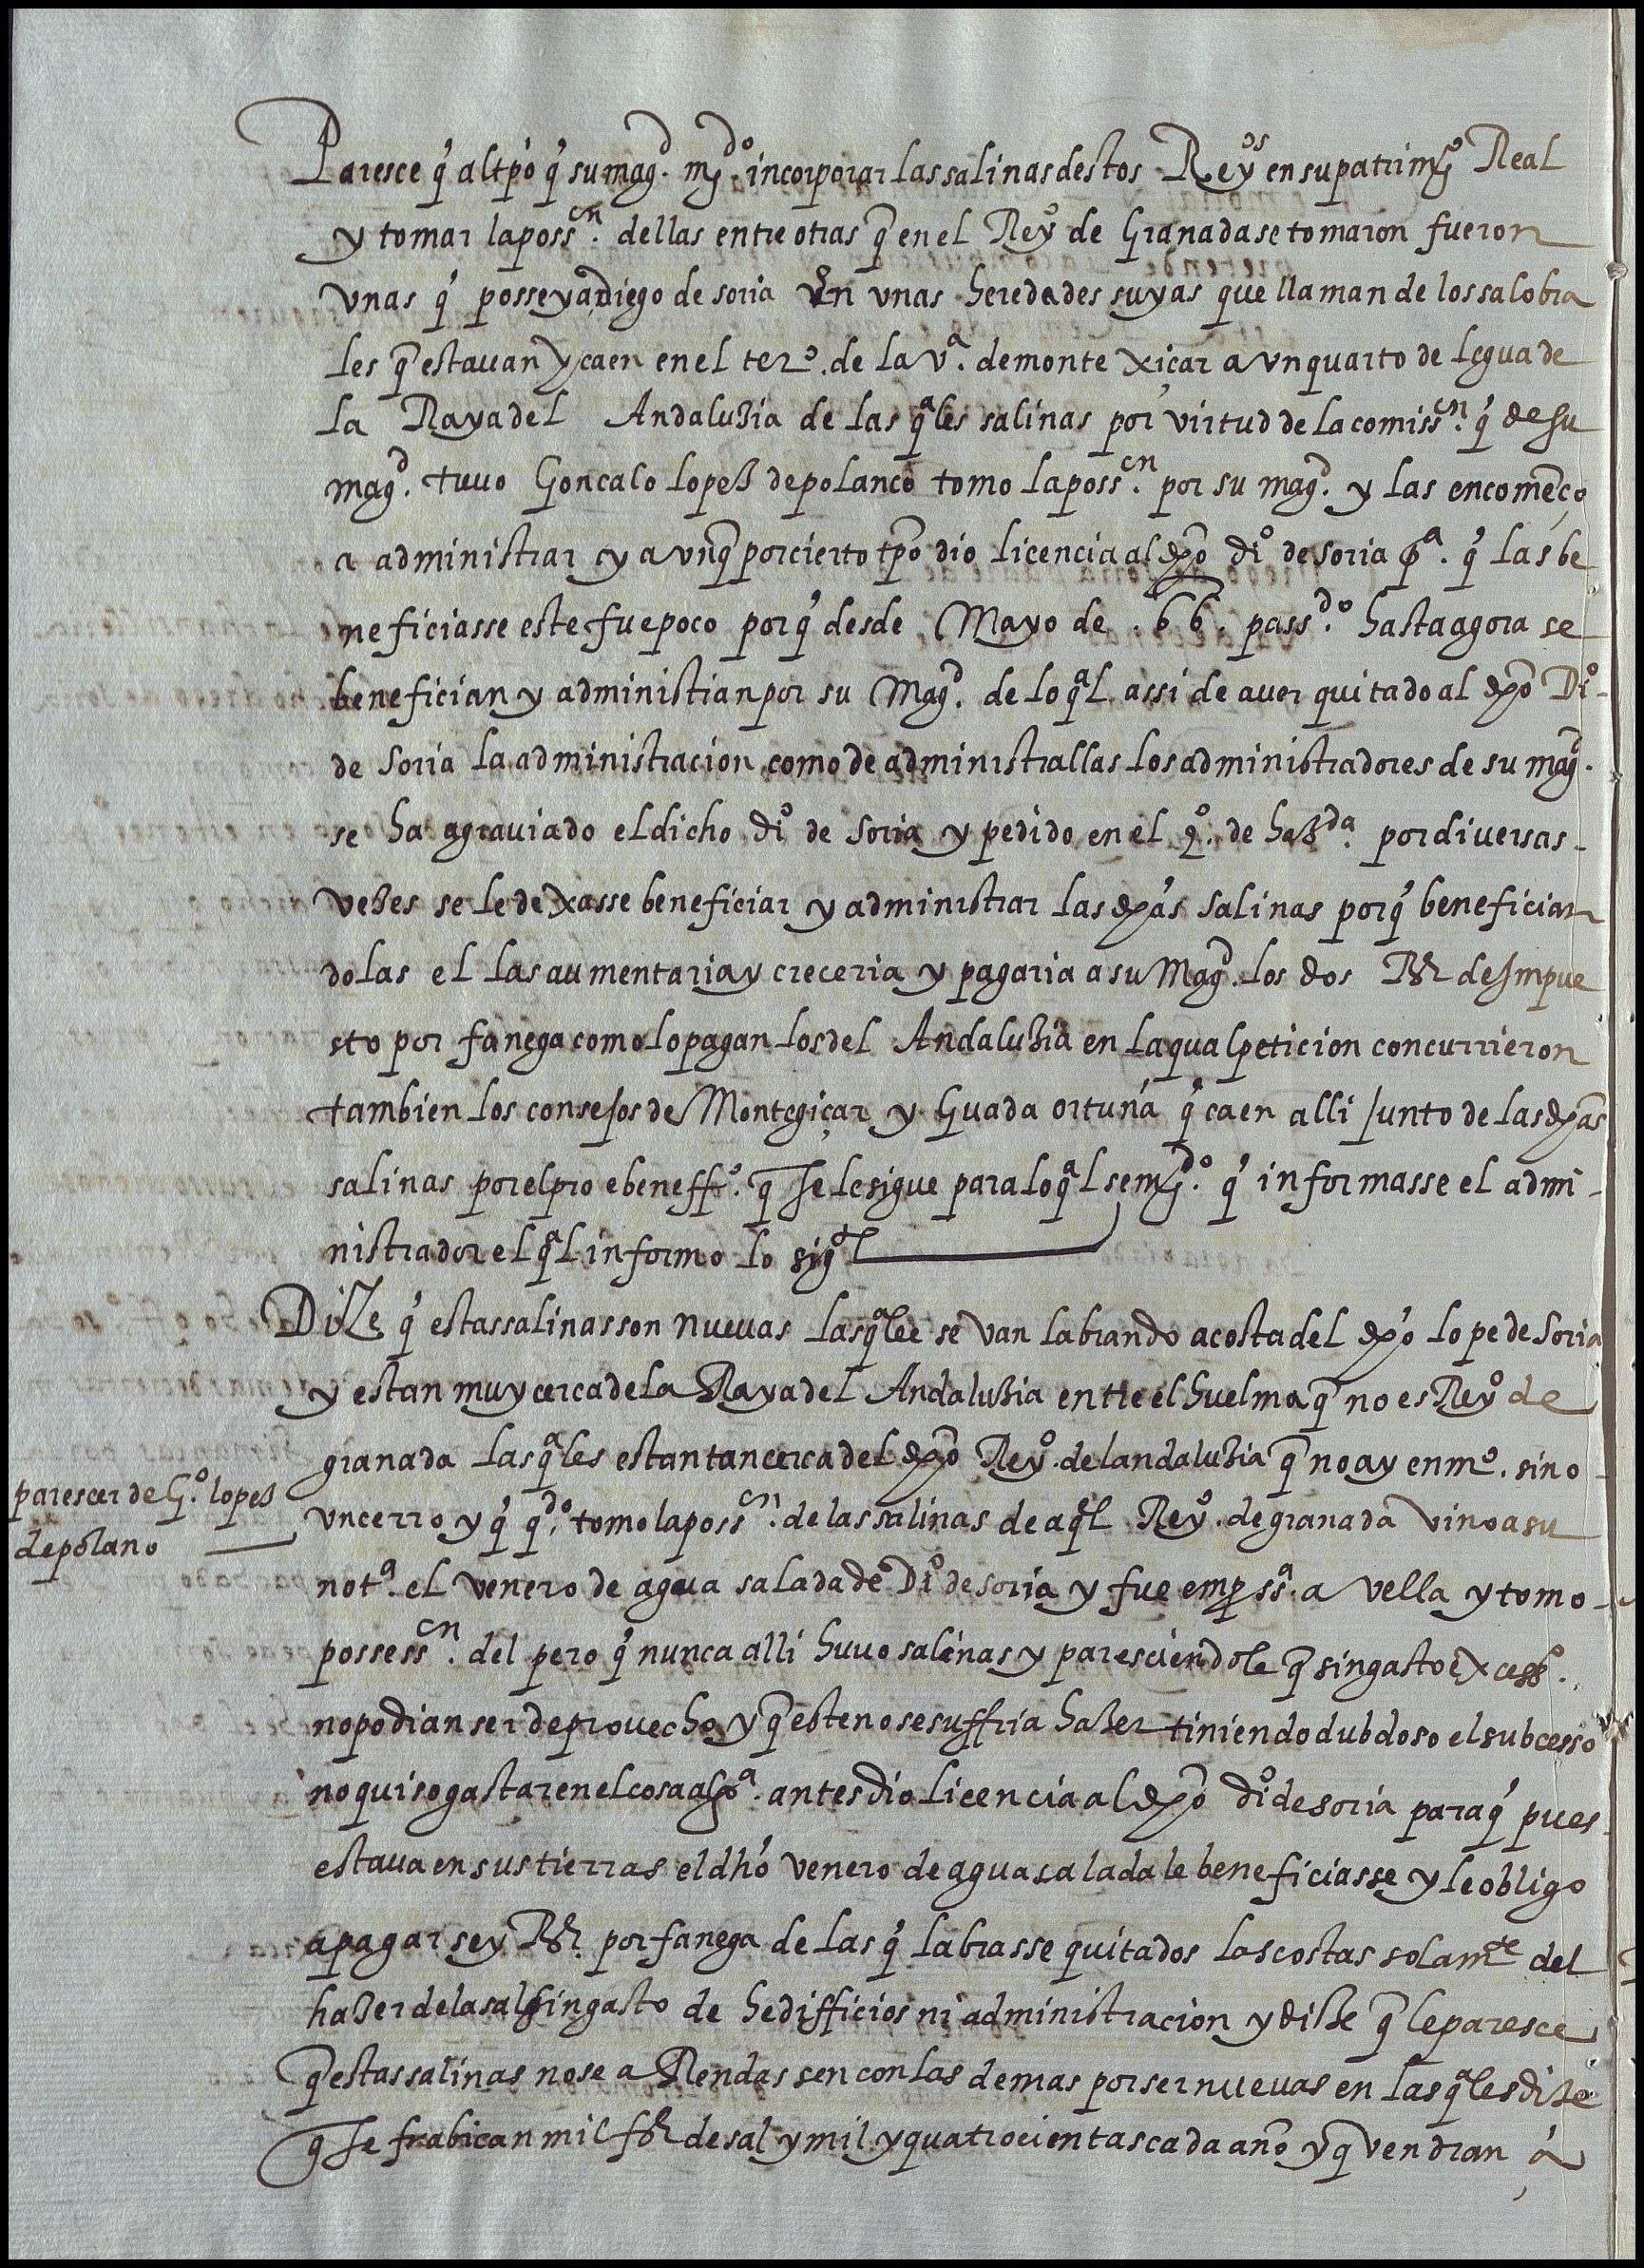 Paresce q̃ al tp̃o q̃ su mag.d m.do incorporar las salinas destos Reyos en su patrimo Real
y tomar la poss.cn dellas entre otras q̃ en el Reyo de Granada se tomaron fueron
vnas q̃ posseya diego de soria En vnas heredades suyas que llaman de los salobra
les q̃ estauan y caen en el ter.o de la v.a de monte xicar a vn quarto de legua de
la Raya del Andaluzia de las q̃les salinas por virtud de la comiss.cn q̃ de su
mag.d tuuo Goncalo lopez de polanco tomo la poss.cn por su mag.d y las encomẽço
a administrar y avnq̃ por cierto tp̃o dio licencia al dho di.o de soria p.a q̃ las be
neficiasse este fue poco porq̃ desde Mayo de .66. pass.do hasta agora se
benefician y administran por su Mag.d de lo q̃l assi de auer quitado al dho Di.o
de Soria la administracion como de administrallas los administradores de su mag.d
se ha agrauiado el dicho di.o de Soria y pedido en el q.o de haz.da por diuersas
vezes se le dexasse beneficiar y administrar las dhas salinas porq̃ beneficiam
dolas el las aumentaria y creceria y pagaria a su Mag.d los dos RR de Impue
sto por fanega como lo pagan los del Andaluzia en la qual peticion concurrieron
tambien los consejos de Montegiçar y Guada ortuna q̃ caen alli junto de las dhas
salinas por el pro e beneff.o q̃ se le sigue para lo q̃l se m.do q̃ informasse el admi
nistrador el q̃l informo lo sig.te
Dize q̃ estas salinas son nueuas las q̃les se van labrando a costa del dho lope de Soria
y estan muy cerca de la Raya del Andaluzia entre el huelma q̃ no es Reyo de
parescer de G.o lopez
de polano
granada las q̃les estan tan cerca del dho Reyo del andaluzia q̃ no ay en m.o sino
vn cerro y q̃ q.do tomo la poss.cn de las salinas de aq̃l Reyo de granada vino a su
not.a el venero de agua salada de Di.o de soria y fue en p.ss.a a vella y tomo
possess.cn del pero q̃ nunca alli huuo salinas y paresciendole q̃ sin gasto excess.o
no podian ser de prouecho y q̃ este no se suffria hazer tiniendo dubdoso el subcesso
no quiso gastar en el cosa alg.a antes dio licencia al dho di.o de soria para q̃ pues
estaua en sus tierras el dho venero de agua salada le beneficiasse y le obligo
a pagar sey RR. por fanega de las q̃ labrasse quitados las costas solam.te del
hazer de la sal sin gasto de hedifficios ni administracion y dize q̃ le paresce
q̃ estas salinas no se a Rendassen con las demas por ser nueuas en las q̃les dize
q̃ se frabican mil fR de sal y mil y quatrocientas cada año y q̃ vendran a